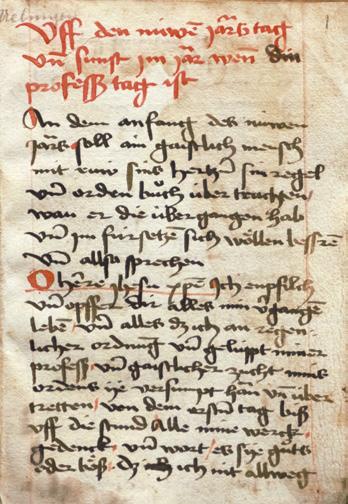 Uff den nüwen jars tag
un̄ sunst im jar wen̄ din
professz tag ist
An dem anfang des nuwen
jars soll ain gaistlich mensch
mit rüw sins hertzen sin regel
un̄ orden buͦch über trachten
wan er die übergangen hab
un̄ im fürsetzē sich wöllen bessrē
un̄ allso sprechen
O herre jhesu xp̄e Ich enpfilch
un̄ opffer dir alles min v̄gangē
leben / un̄ alles dz ich an regen
licher ordnung un̄ gelüppt miner
professz / un̄ gaistlicher zucht mins
ordens ye versumpt han un̄ über
tretten / von dem ersten tag bisz
uff die stund Alle mine werck
gedenck / un̄ wort / es sye guͦts
oder bösz / dz ich nit allweg